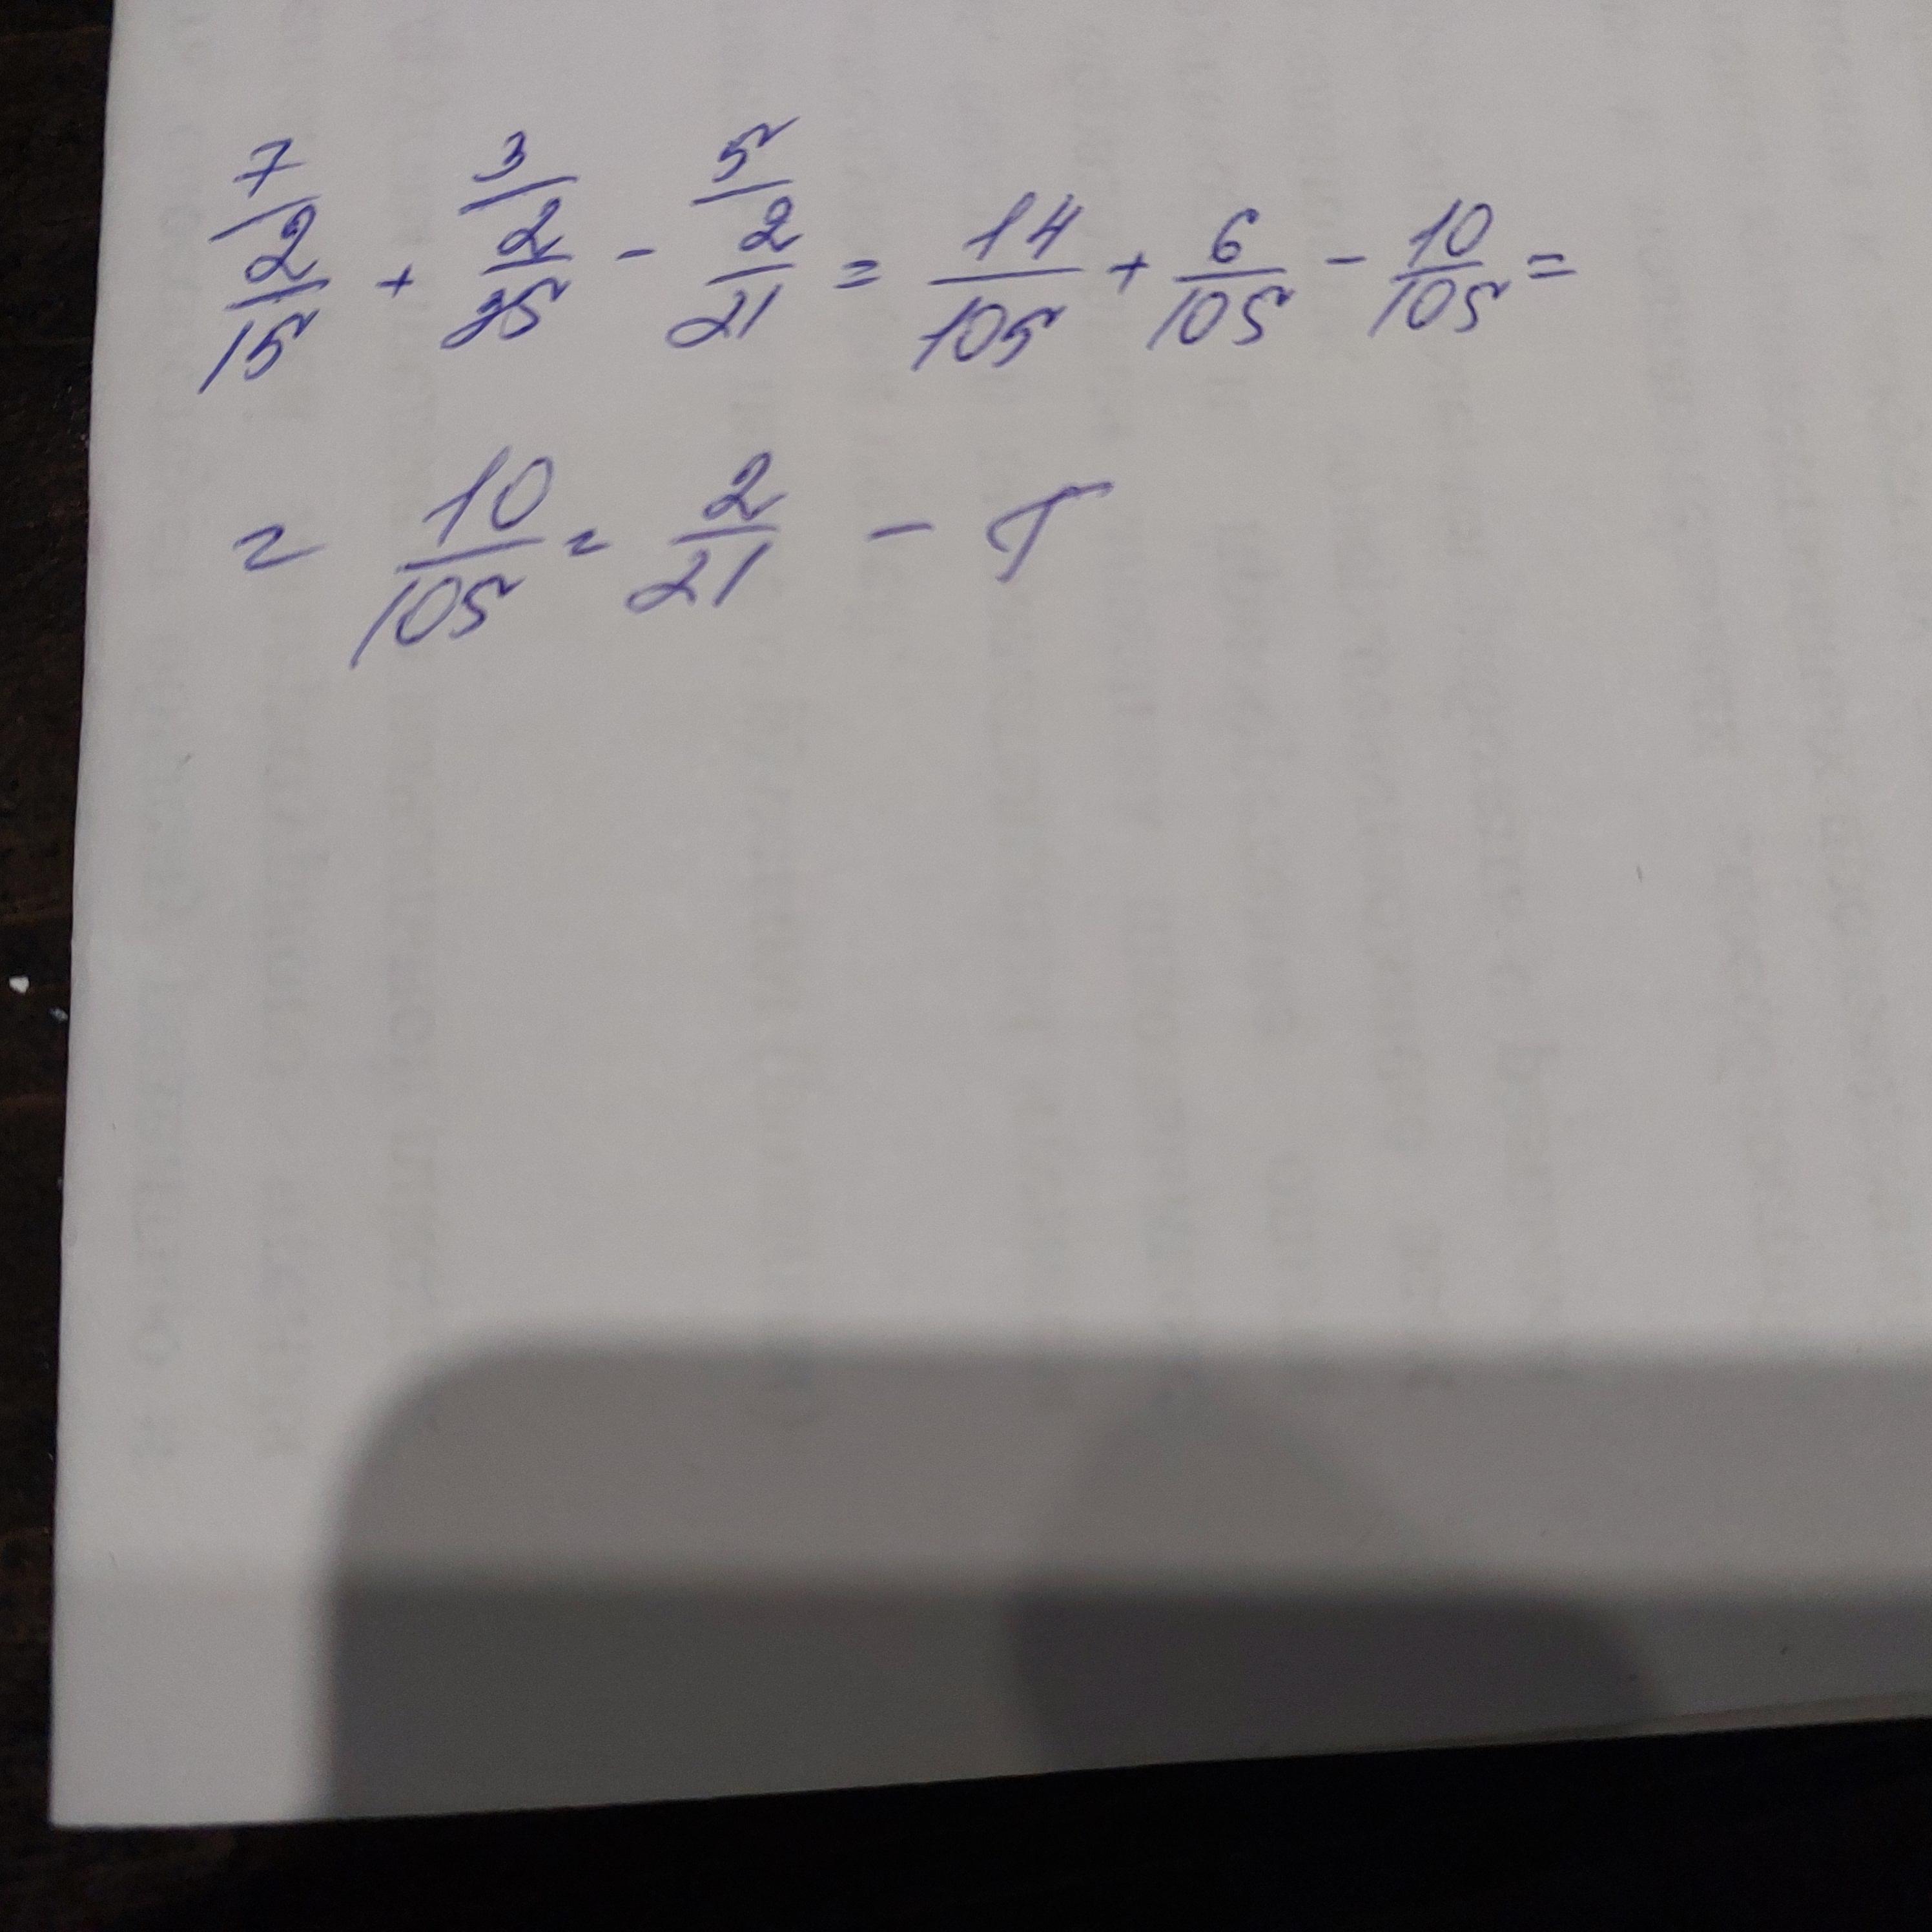 7/2/15 + 3/2/35 - 5/2/21 = 14/105 + 6/105 - 10/105 =
= 10/105 = 2/21 -